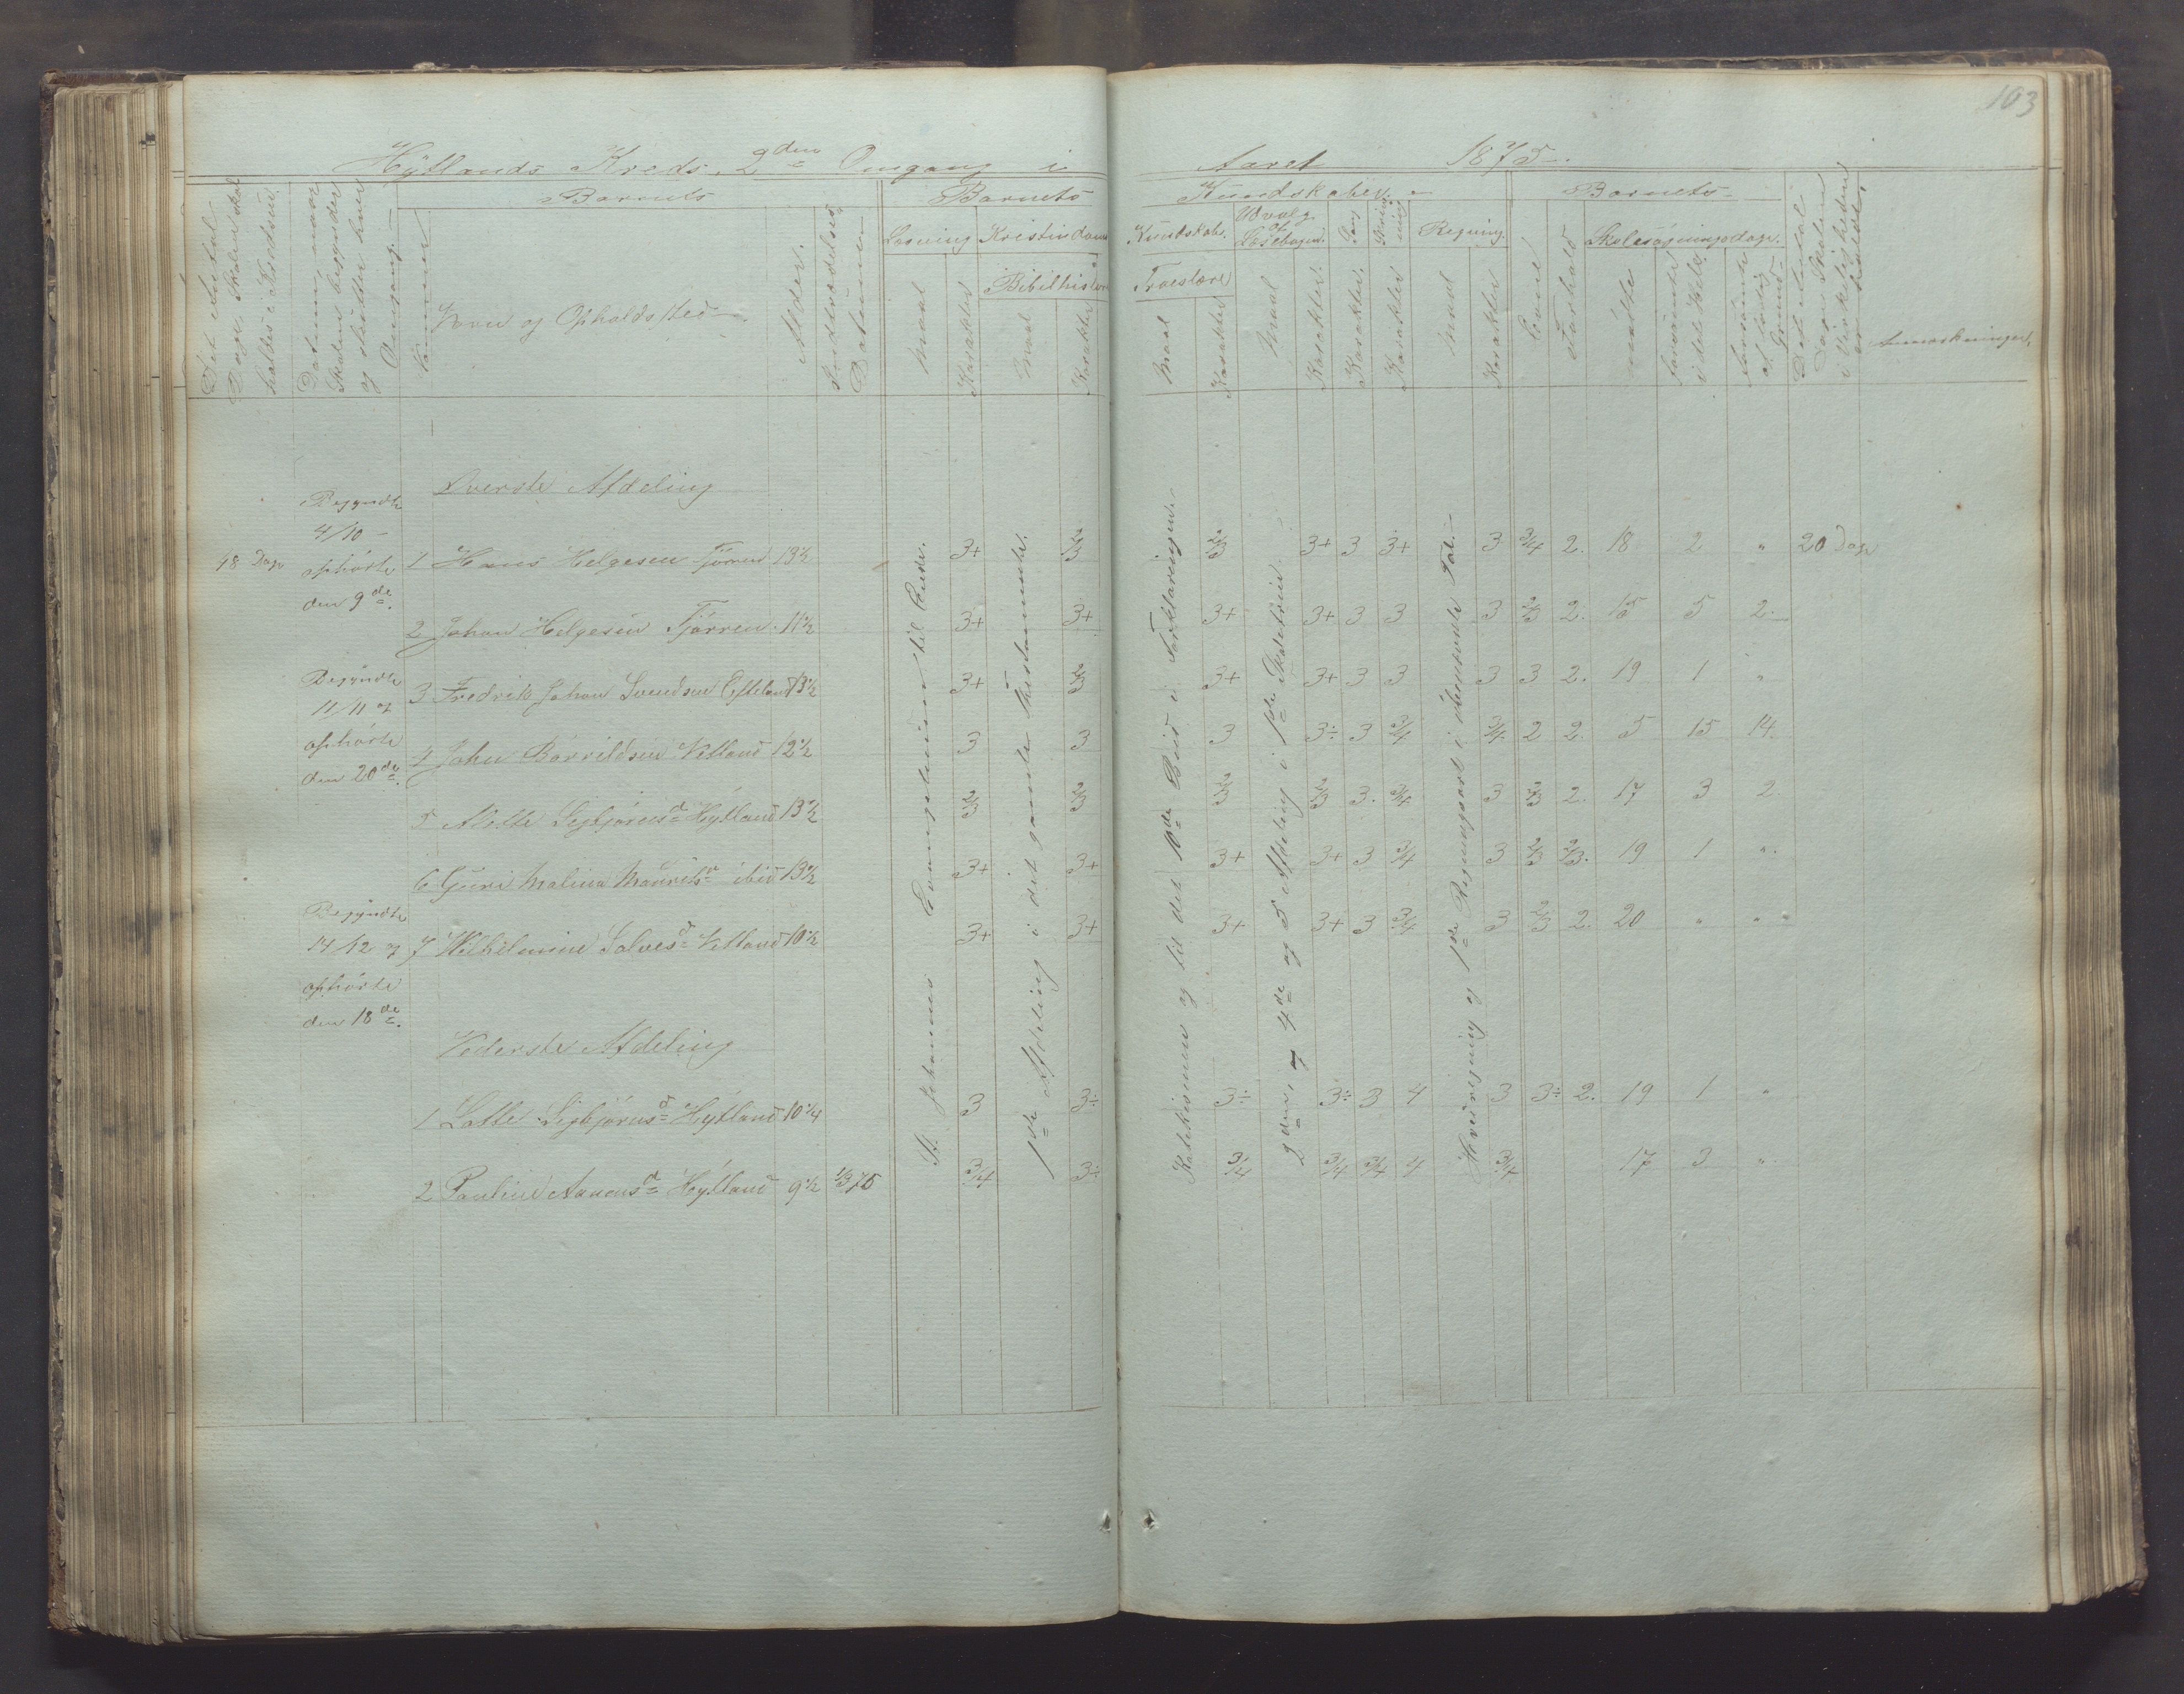 103
Hÿllands Kreds, 2den Omgang i Aaret 1875.
Det Antal Dage, Skolen skal holdes i Kredsen.
Datum, naar Skolen begynder og slutter hver Omgang.
Barnets
Nummer
Navn og Opholdssted.
Alder.
Indtrædelses Datum
Barnets Kundskaber.
Læsning
Maal
Karakter
Kristendoms Kundskab.
Bibelhistorie
Maal
Karakter
Troeslære
Maal
Karakter
Udvalg af Læsebogen.
Maal
Karakter.
Sang
Karakter.
Skrivning
Karakter
Regning
Maal
Karakter
Barnets
Evne
Forhold
Skolesøgningsdage.
mødte
forsømte i det Hele.
forsømte af lovlig Grund.
Det Antal Dage Skolen i Virkeligheden er holdt.
Anmærkninger.
Øverste Afdeling
18 Dage
Begyndte
4/10 –
ophørte
den 9de.
Begyndte
11/11 og
ophørte
den 20de.
Begyndte
14/12 og
ophørte
den 18de.
1 Hans Helgesen Tjörren 13½ 3+ 2/3 2/3 3+ 3 3+ 3 3/4 2. 18 2 " 20 Dage
2 Johan Helgesen Tjörren 11½ 3+ 3+ 3+ 3+ 3 3 3 2/3 2. 15 5 2.
3 Fredrik Johan Svendsen Efteland 13½ 3+ 2/3 3+ 3+ 3 3 3 3 2. 19 1 "
4 John Bårrildsen Vetland 12½ 3 3 3 3÷ 3 3/4 3/4 2 2. 5 15 14.
5 Alette Sigbjörnsd Hÿlland 13½ 2/3 2/3 2/3 2/3 3. 3/4 3 2/3 2. 17 3 2.
6 Guri Malina Mauritsd ibid 13½ 3+ 3+ 3+ 3+ 3 3/4 3 2/3 2/3. 19 1 ".
7 Wilhelmine Salvesd Vetland 10½ 3+ 3+ 3+ 3+ 3 3/4 3 2/3 2. 20 " "
Nederste Afdeling
1 Lotte Sigbjörnsd Hÿlland 10¼ 3 3÷ 3÷ 3÷ 3 4 3 3÷ 2. 19 1 "
2 Pauline Aanensd Hÿlland 9½ 1/3 75 3/4 3÷ 3/4 3/4 3/4 4 3/4 17 3 "
St. Johannes Evangelium til Ende.
1ste Afdeling i det gamle Testamente.
Katekismen og til det 10de Bud i Forklaringen.
2den, og 4de og 5 Afdeling i 1ste Skoletrin.
Hovedregning og 1ste Regningsart i ubenævnte Tal.